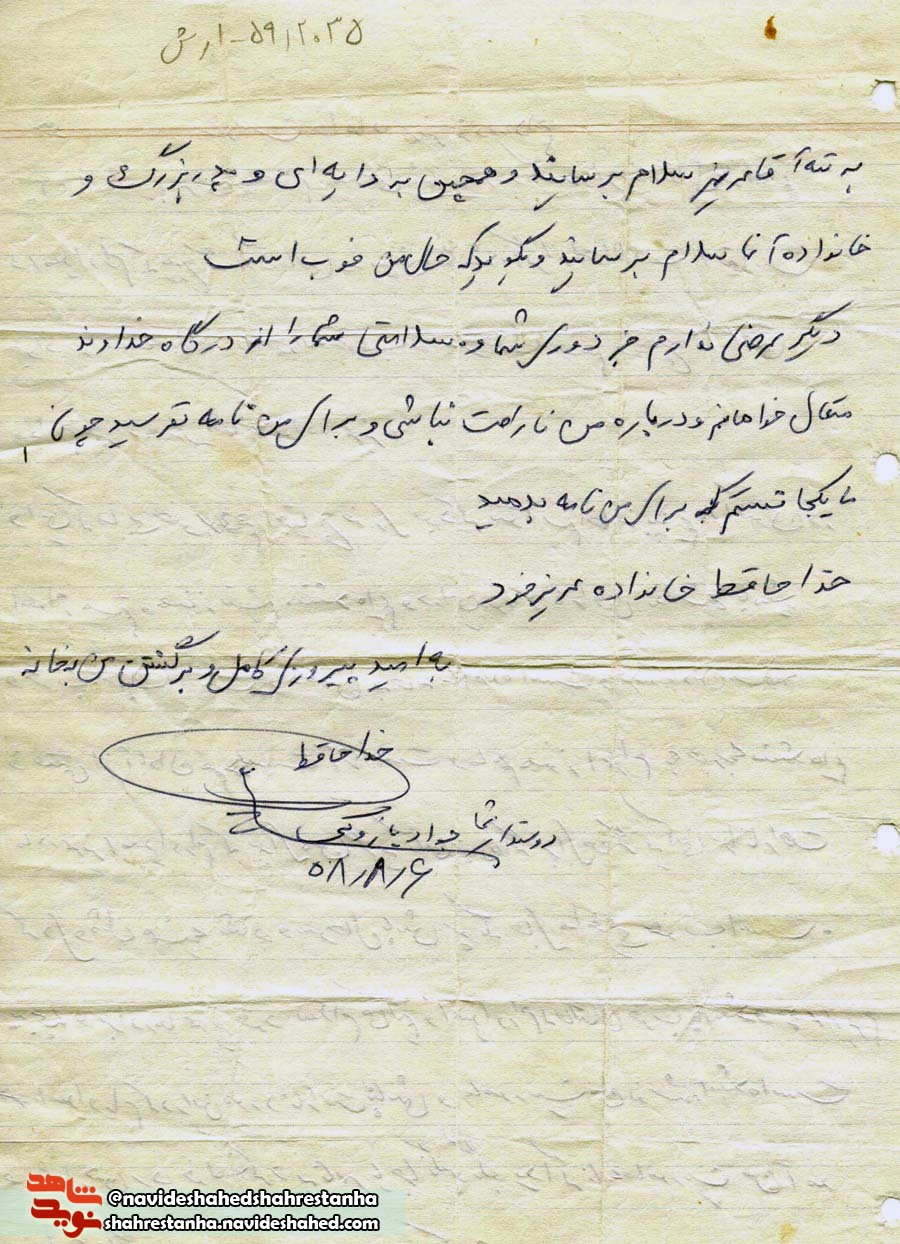 ۵۹/۲۰۳۵ - ارش
به ننه آقا عزیز سلام برسانید و همچین به دایه ای و پدربزرگ و
خانواده آنا سلام برسانید و بگویدکه حال من خوب است
دیگر عرضی ندارم جز دوری شما و سلامتی شما را از درگاه خداوند
متعال خواهانم و درباره من ناراحت نباشی و برای من نامه نفرسید چون
ما یکجا نیستم که برای من نامه بدهید
خدا حافظ خانواده عزیز خود
به امید پیروزی کامل و برگشتن من بخانه
خدا حافظ
دوستدار شما جواد
۵۸/۸/۶
شاهد
نوید
@navideshahedshahrestanha
shahrestanha.navideshahed.com